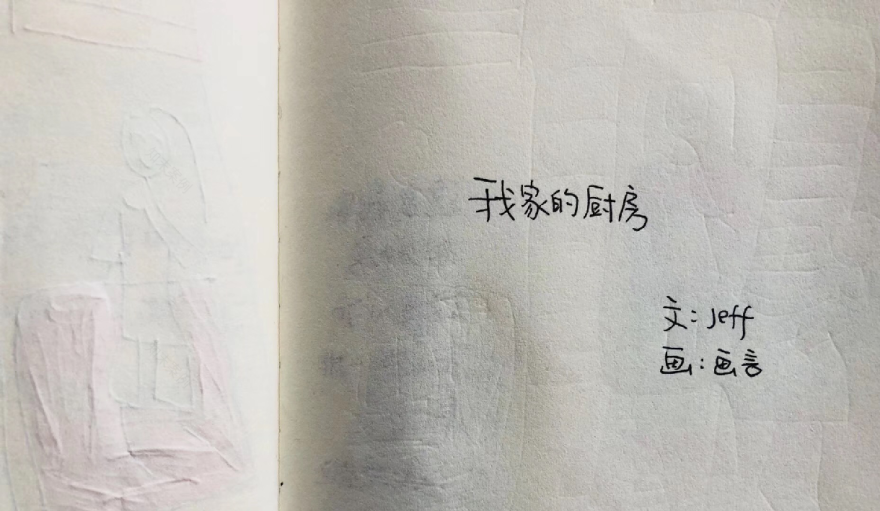 我家的厨房
文:Jeff
画:画言